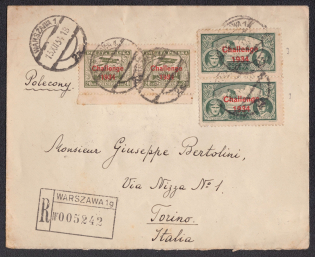 WARSZAWA 1
Polecony
Challenge
1934
Challenge
1934
Challenge
1934
Challenge
1934
Monsieur Giuseppe Bertolini,
Via Nizza № 1.
Torino.
Italia
WARSZAWA 1
R № 005242